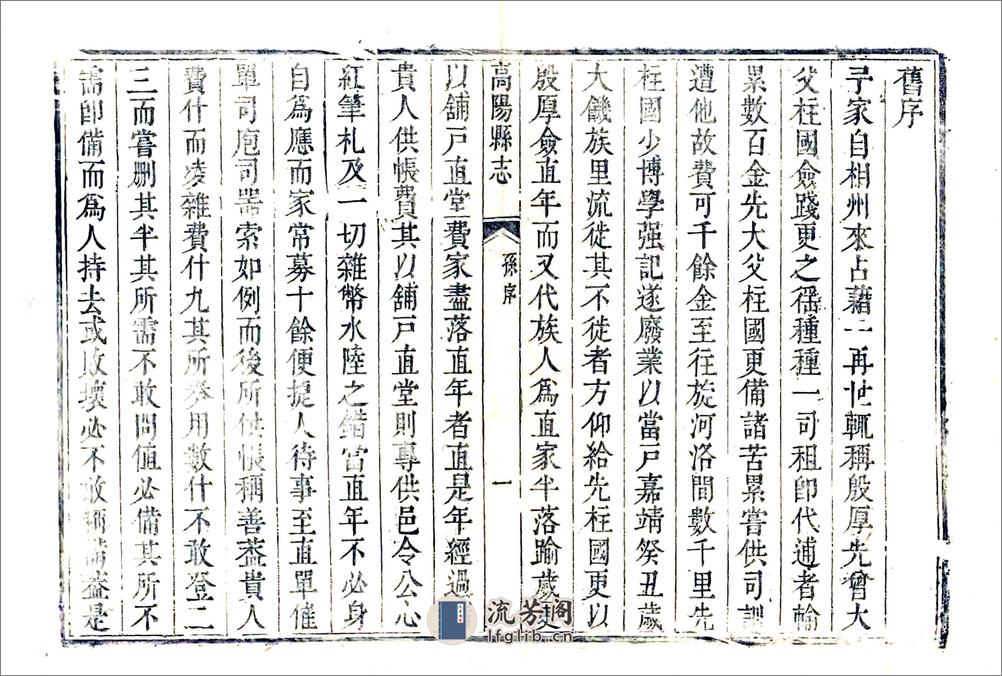 舊序
予家自相州來占藉一再世輒稱殷厚先曾大
父柱國僉踐更之徭種種一司租卽代逋者輸
累數百金先大父柱國更備諸苦累嘗供司訓
遭他故費可千餘金至往旋河洛間數千里先
柱國少博學强記遂廢業以當戸嘉靖癸丑歲
大饑族里流徙其不徙者方仰給先柱國更以
殷厚僉直年而又代族人爲直家半落踰歲更
高陽縣志
孫序
一
以舖戸直堂費家盡落直年者直是年經過
貴人供帳費其以舖戸直堂則專供邑令公心
紅筆札及一切雜幣水陸之錯當直年不必身
自爲應而家常募十餘便捷人待事至直單催
單司庖司器索如例而後所供帳稱善葢貴人
費什而凌雜費什九其所用數什不敢登二
三而嘗刪其半其所需不敢問值必備其所不
需卽備而爲人持去或敗壞必不敢稱葢是
流芳阁
lfglib.cn